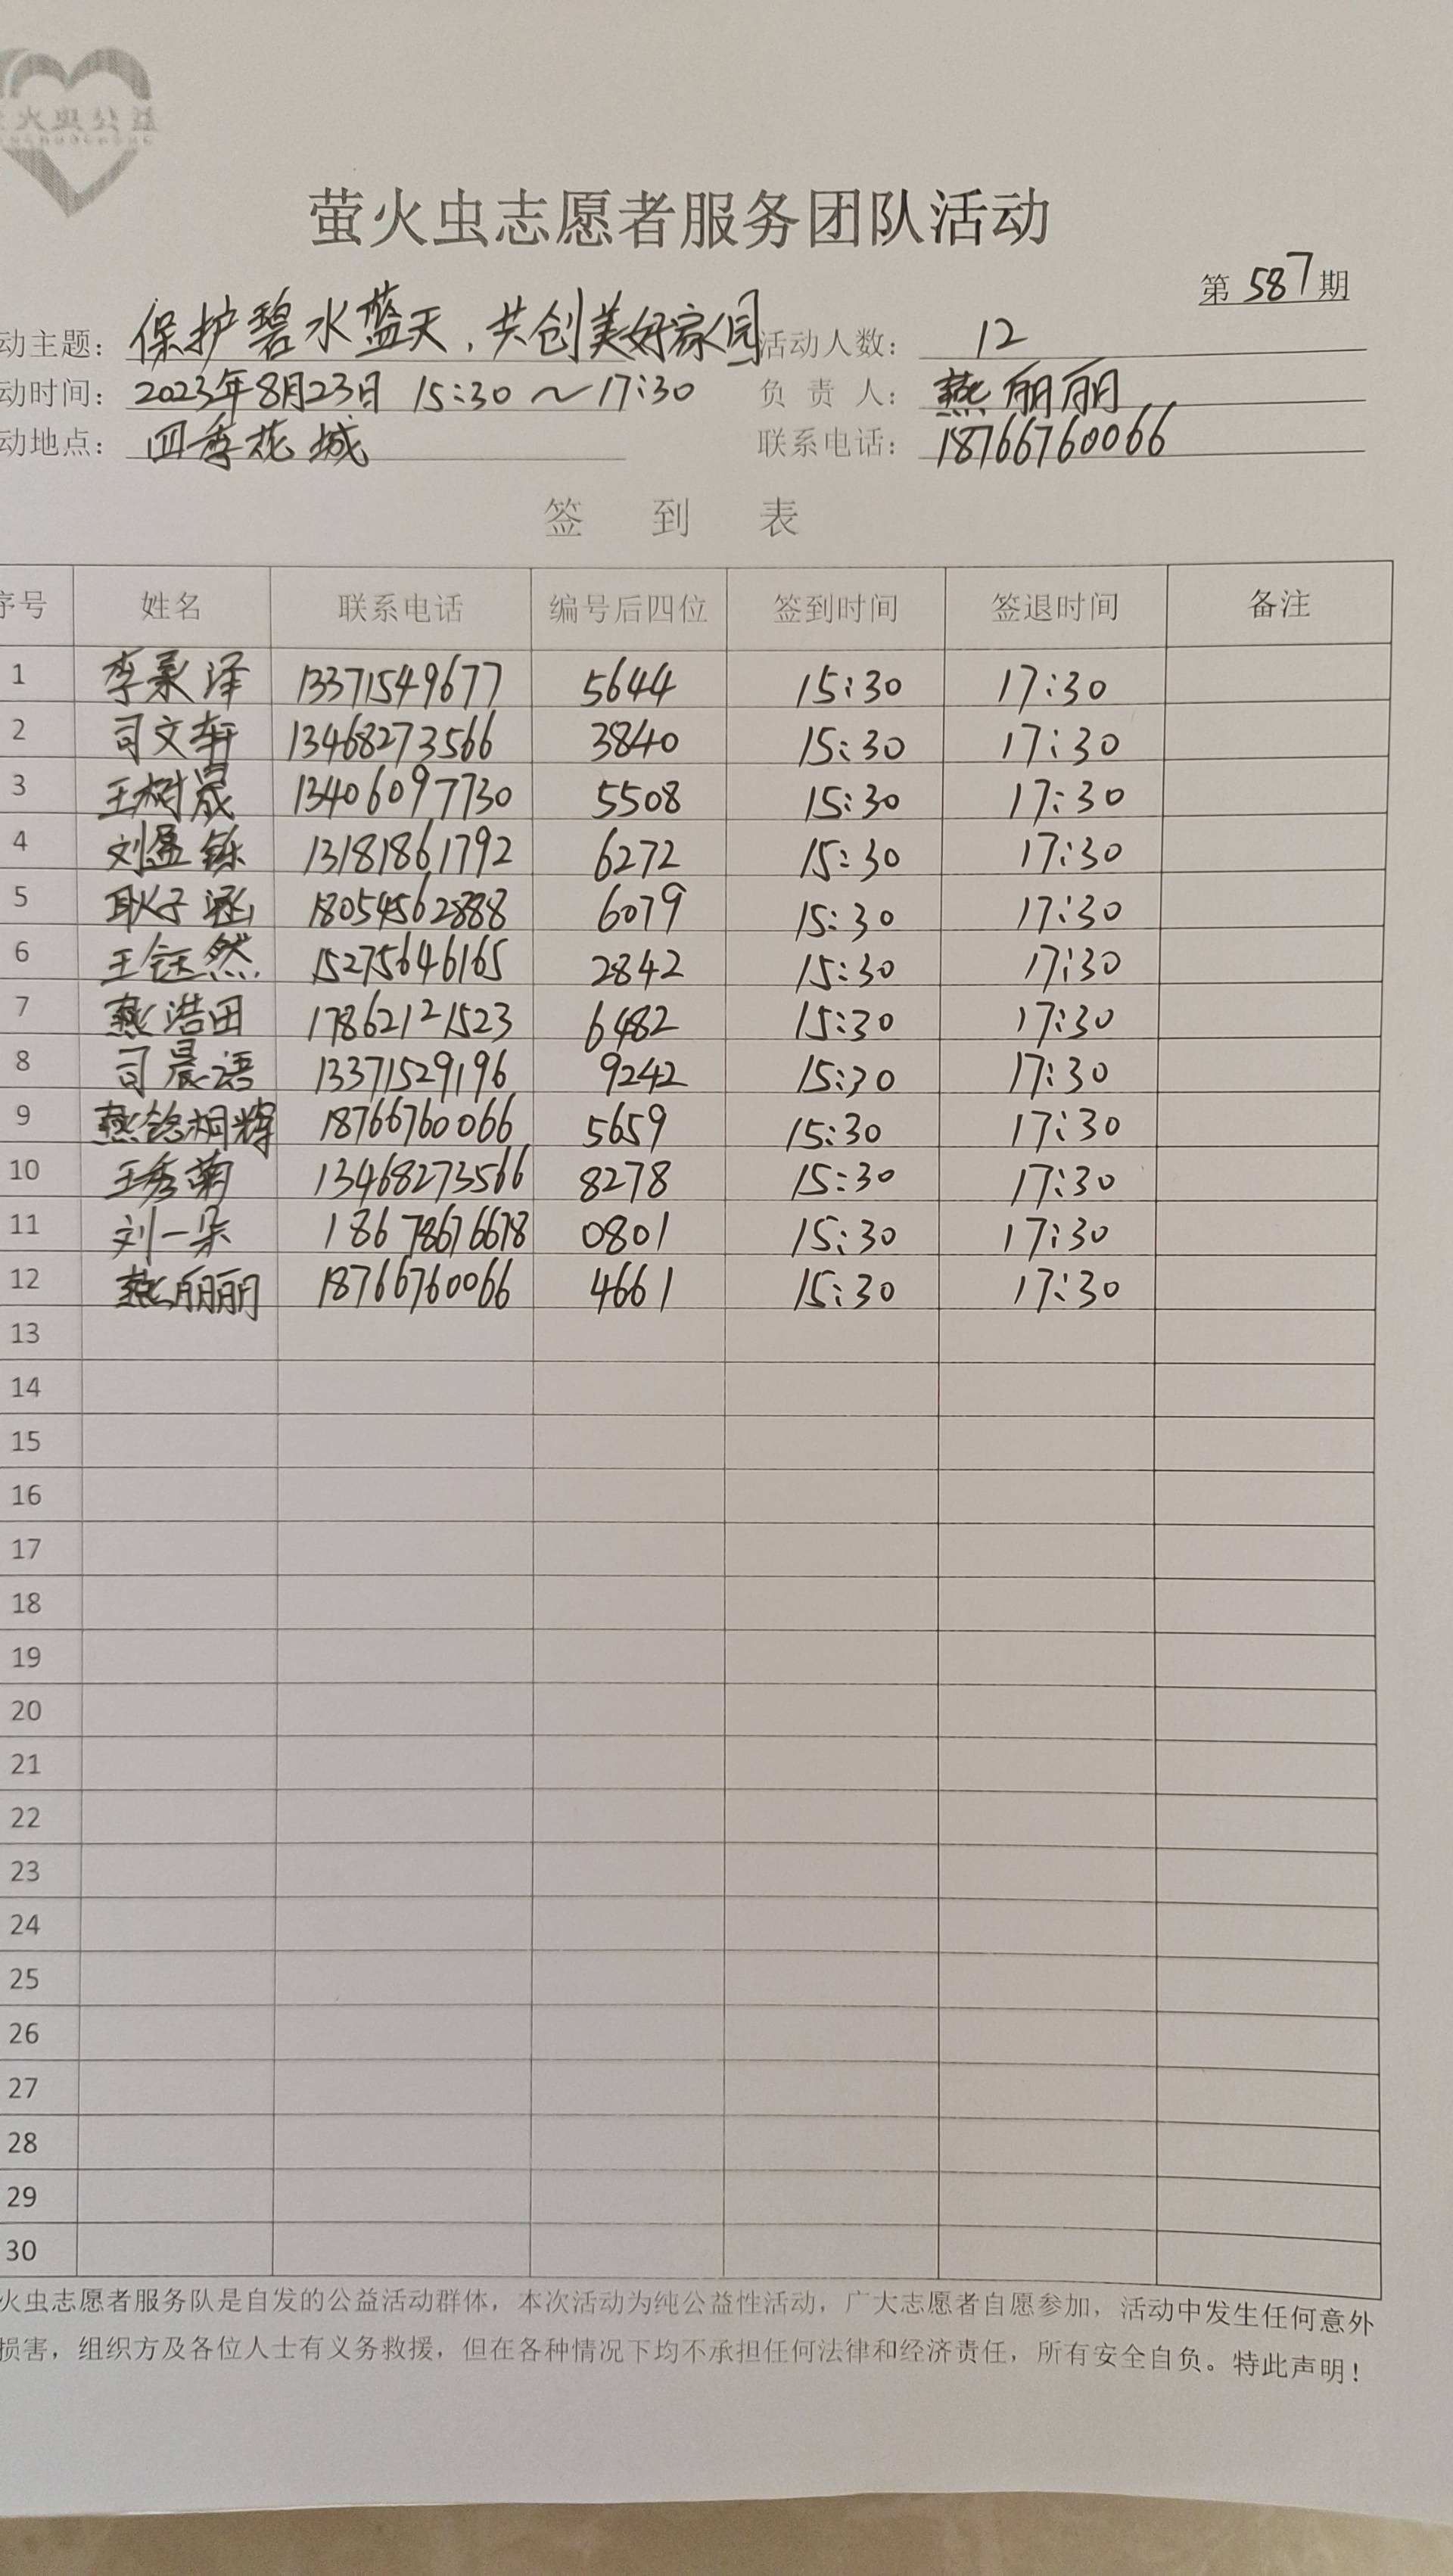 火虫公益
萤火虫志愿者服务团队活动
第 587 期
动主题： 保护碧水蓝天，共创美好家园 活动人数： 12
动时间： 2023年8月23日 15:30～17:30 负 责 人： 燕丽丽
动地点： 四季花城 联系电话： 18766760066
签 到 表
序号 姓名 联系电话 编号后四位 签到时间 签退时间 备注
1 李泽 13371549677 5644 15:30 17:30
2 司文轩 13468273566 3840 15:30 17:30
3 王树晟 13406097730 5508 15:30 17:30
4 刘孟铄 13181861792 6272 15:30 17:30
5 耿子涵 18054562888 6079 15:30 17:30
6 王钰然 15275646165 2842 15:30 17:30
7 燕浩田 17862121523 6482 15:30 17:30
8 司晨语 13371529196 9242 15:30 17:30
9 燕桐辉 18766760066 5659 15:30 17:30
10 王秀菊 13468273566 8278 15:30 17:30
11 刘一朵 18678676678 0801 15:30 17:30
12 燕丽丽 18766760066 4661 15:30 17:30
13
14
15
16
17
18
19
20
21
22
23
24
25
26
27
28
29
30
火虫志愿者服务队是自发的公益活动群体，本次活动为纯公益性活动，广大志愿者自愿参加，活动中发生任何意外
损害，组织方及各位人士有义务救援，但在各种情况下均不承担任何法律和经济责任，所有安全自负。特此声明！